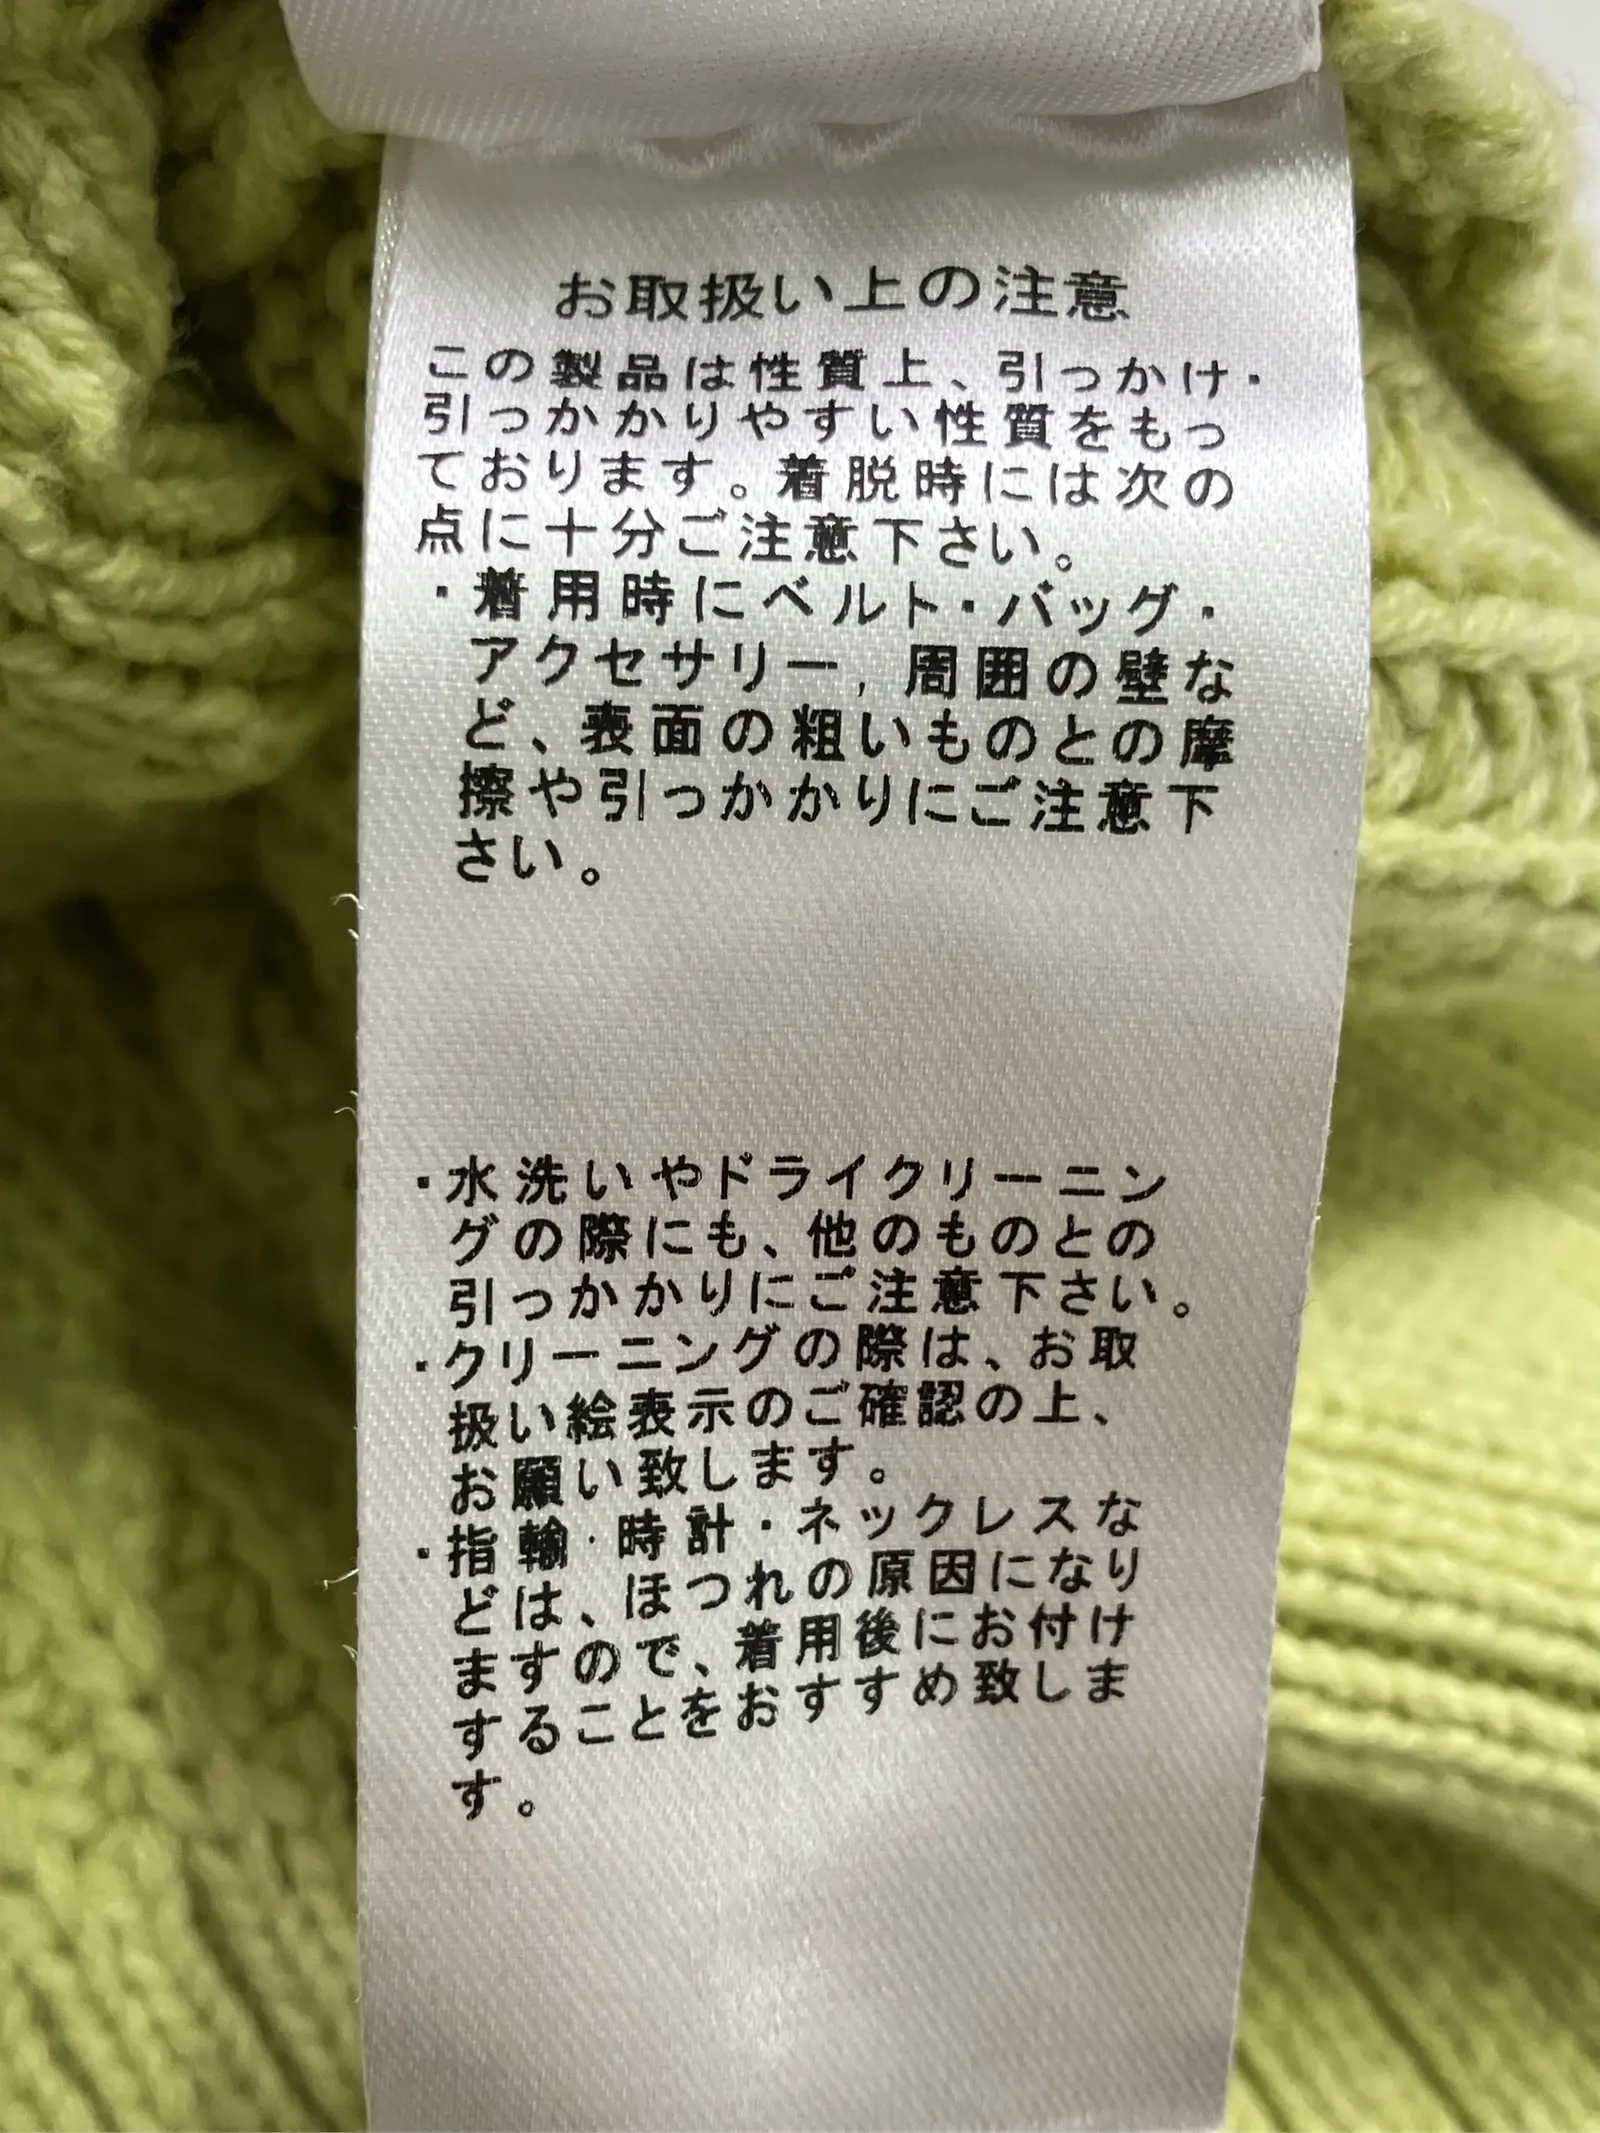 お取扱い上の注意
この製品は性質上、引っかけ・
引っかかりやすい性質をもっ
ております。着脱時には次の
点に十分ご注意下さい。
・着用時にベルト・バッグ・
アクセサリー,周囲の壁な
ど、表面の粗いものとの摩
擦や引っかかりにご注意下
さい。
・水洗いやドライクリーニン
グの際にも、他のものとの
引っかかりにご注意下さい。
・クリーニングの際は、お取
扱い絵表示のご確認の上、
お願い致します。
・指輪・時計・ネックレスな
どは、ほつれの原因になり
ますので、着用後にお付け
することをおすすめ致しま
す。